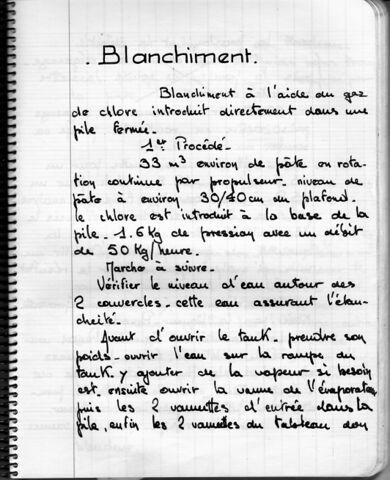 . Blanchiment.
Blanchiment à l'aide du gaz
de chlore introduit directement dans une
pile fermée.
1er Procédé.
33 m3 environ de pâte en rota-
tion continue par propulseur. niveau de
pâte à environ 30/40 cm du plafond.
le chlore est introduit à la base de la
pile. 1.6 Kg de pression avec un débit
de 50 Kg/heure.
Marche à suivre.
Vérifier le niveau d'eau autour des
2 couvercles. cette eau assurant l'étan-
cheité.
Avant d'ouvrir le tank. prendre son
poids. ouvrir l'eau sur la rampe du
tank y ajouter de la vapeur si besoin
est. ensuite ouvrir la vanne de l'évaporateur
puis les 2 vannettes d'entrée dans la
pile, enfin les 2 vannettes du tableau don